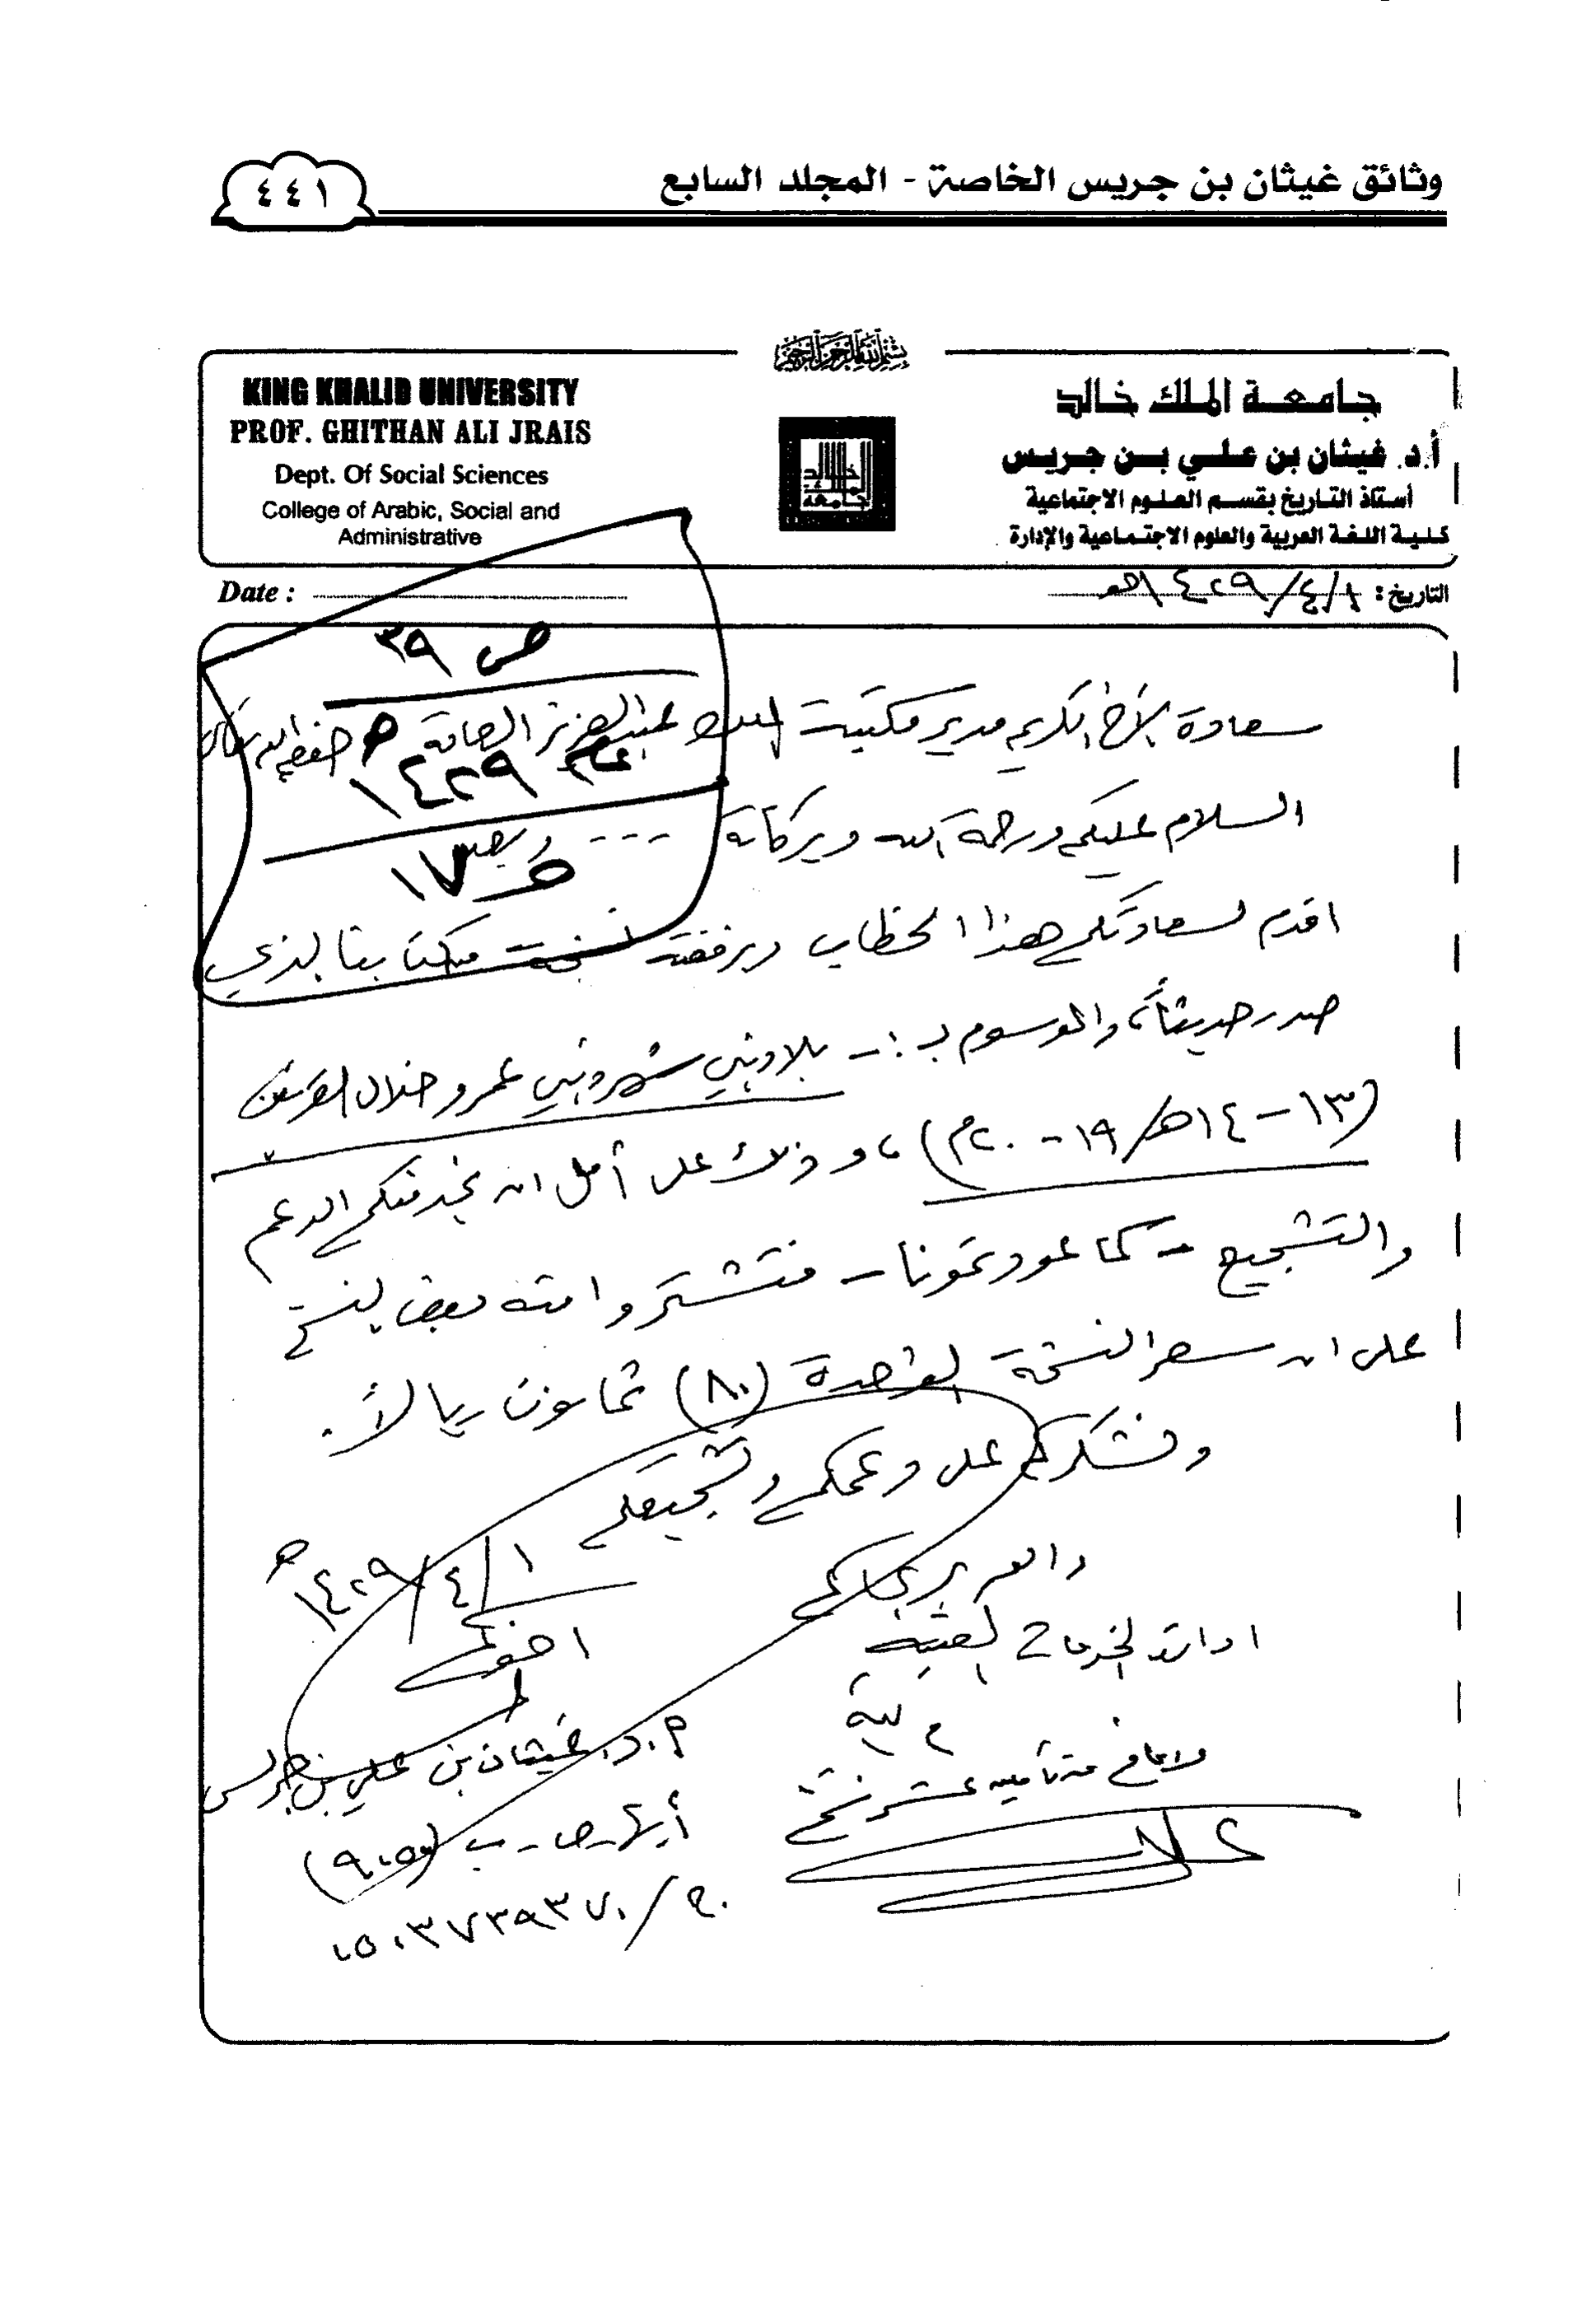 وثائق غيثان بن جريس الخاصة - المجلد السابع
٤٤١
بسم الله الرحمن الرحيم
جامعة الملك خالد
أ.د. غيثان بن علي بن جريس
أستاذ التاريخ بقسم العلوم الاجتماعية
كلية اللغة العربية والعلوم الاجتماعية والإدارة
KING KHALID UNIVERSITY
PROF. GHITHAN ALI JRAIS
Dept. Of Social Sciences
College of Arabic, Social and
Administrative
جامعة الملك خالد
التاريخ: ١/٤/١٤٢٩هـ
Date :
ص ٣٩
عام ١٤٢٩هـ
ص ١٧
سعادة الأخ الكريم مدير مكتبة الملك عبدالعزيز العامة حفظه الله
السلام عليكم ورحمة الله وبركاته --- وبعد
اقدم لسعادتكم هذا الخطاب وبرفقته نسخة من كتابنا الذي
صدر حديثاً، والموسوم بـ :- بلاد بني شهر وبني عمرو خلال القرنين
(١٣-١٤هـ/١٩-٢٠م)، وذلك على أمل ان نجد منكم الدعم
والتشجيع - كما عودتمونا - فتشتروا منه بعض النسخ
على ان سعر النسخة الواحدة (٨٠) ثمانون ريالاً.
ونشكركم على دعمكم وتشجيعكم
والله يرعاكم
١/٤/١٤٢٩هـ
اخوكم
أ.د. غيثان بن علي بن جريس
أبها ـ ص ـ ب (٩٠٥٠)
ج/ ٠٥٠٣٧٣٩٣٧٠
ادارة الخدمات الفنية
لا مانع من تأمين عشر نسخ